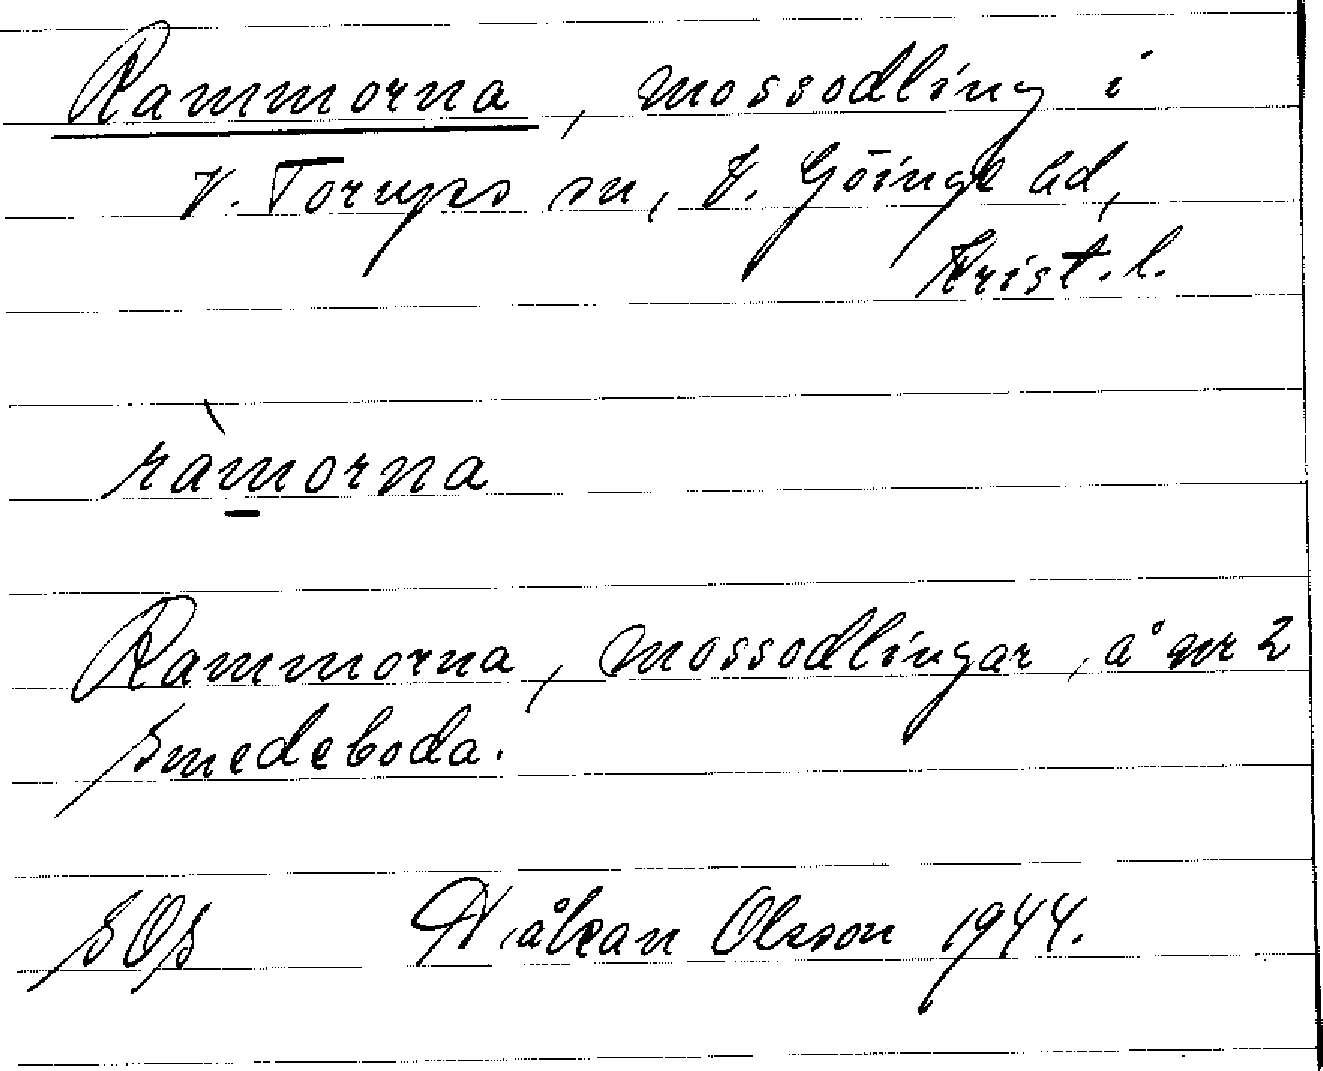 Rammorna, mossodling i
V. Torups sn, V. Göinge hd,
Krist. l.
ràm̱orna
Rammorna, mossodlingar, å nr 2
Smedeboda.
SOS Håkan Olsson 1944.